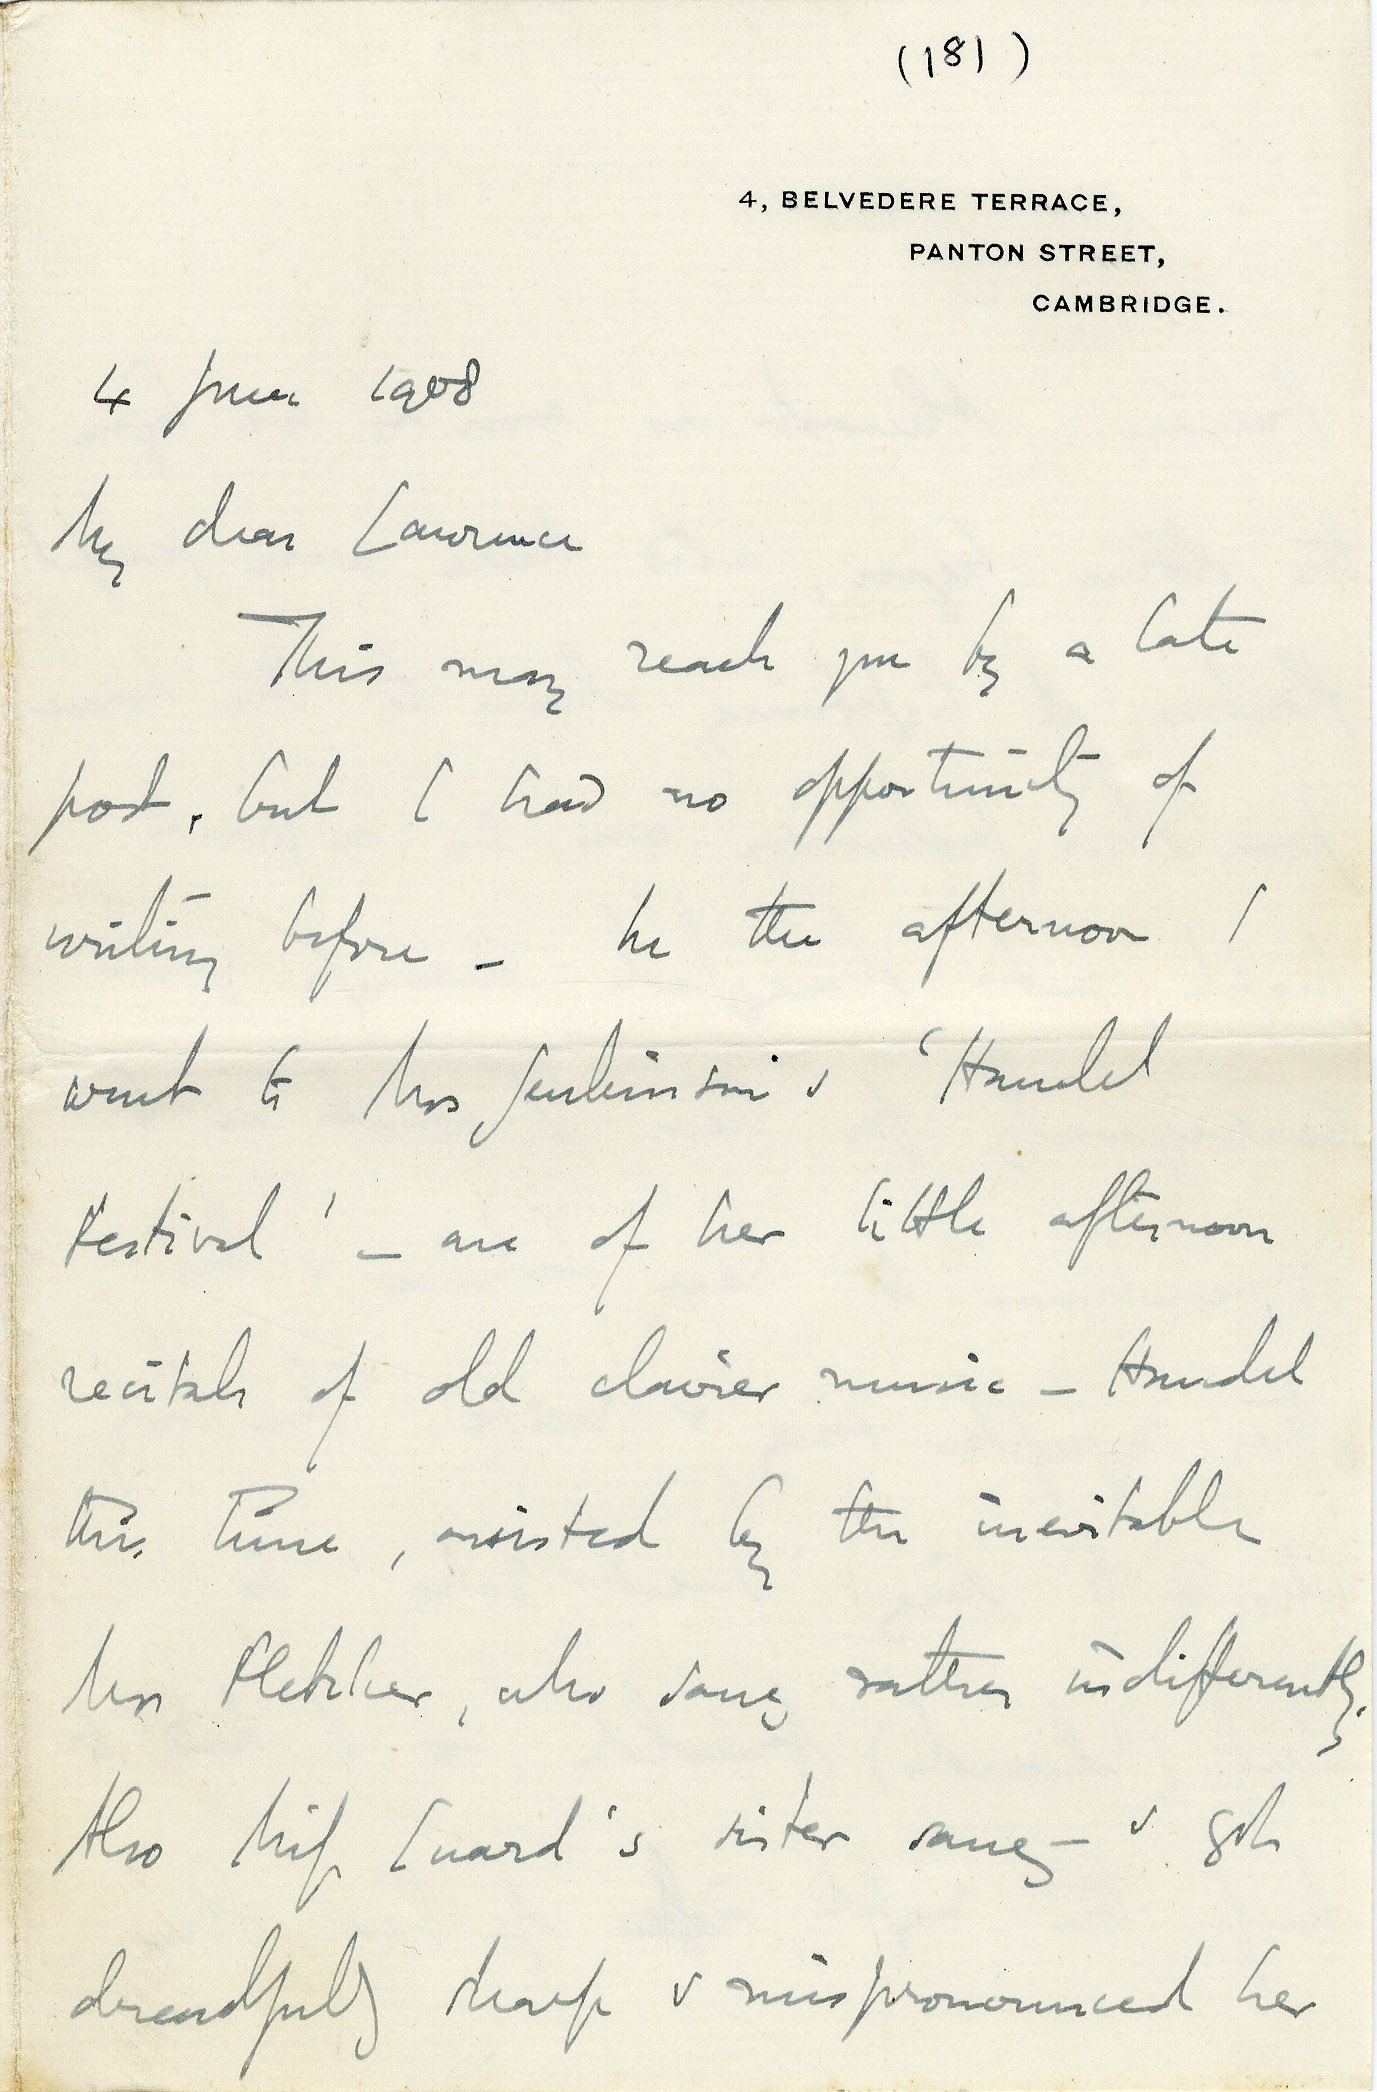 (181)
4, BELVEDERE TERRACE,
PANTON STREET,
CAMBRIDGE.
4 June 1908
My dear Lawrence
This may reach you by a late
post, but I had no opportunity of
writing before – In the afternoon I
went to Mrs Jenkinson's 'Handel
Festival' – one of her little afternoon
recitals of old clavier music – Handel
this time, assisted by the inevitable
Mrs Fletcher, who sang rather indifferently.
Also Miss Luard's sister sang – & got
dreadfully sharp & mispronounced her